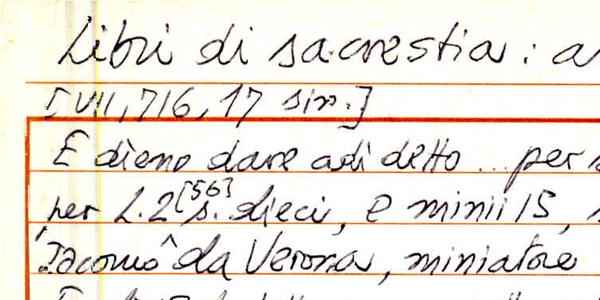 Libri di sacrestia: a
[VII, 716, 17 sin.]
E dieno dare adi detto ... per s
per L. 2 [56] s. dieci, e minii 15, s
Jacomo da Verona, miniatore